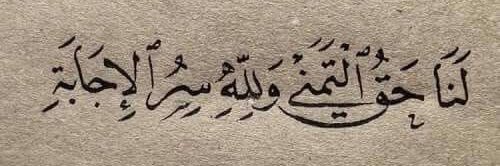 لَنَا حَقُّ ٱلْتَمَنِّي وَلِلَّهِ سِرُّ ٱلإِجَابَةِ